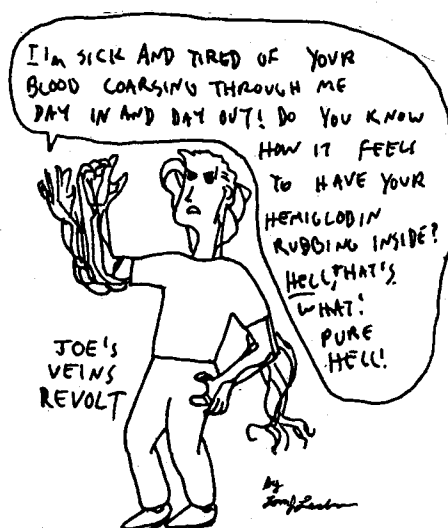 I'm SICK AND TIRED OF YOUR
BLOOD COARSING THROUGH ME
DAY IN AND DAY OUT! DO YOU KNOW
HOW IT FEELS
TO HAVE YOUR
HEMIGLOBIN
RUBBING INSIDE?
HELL, THAT'S
WHAT!
PURE
HELL!
JOE'S
VEINS
REVOLT
By